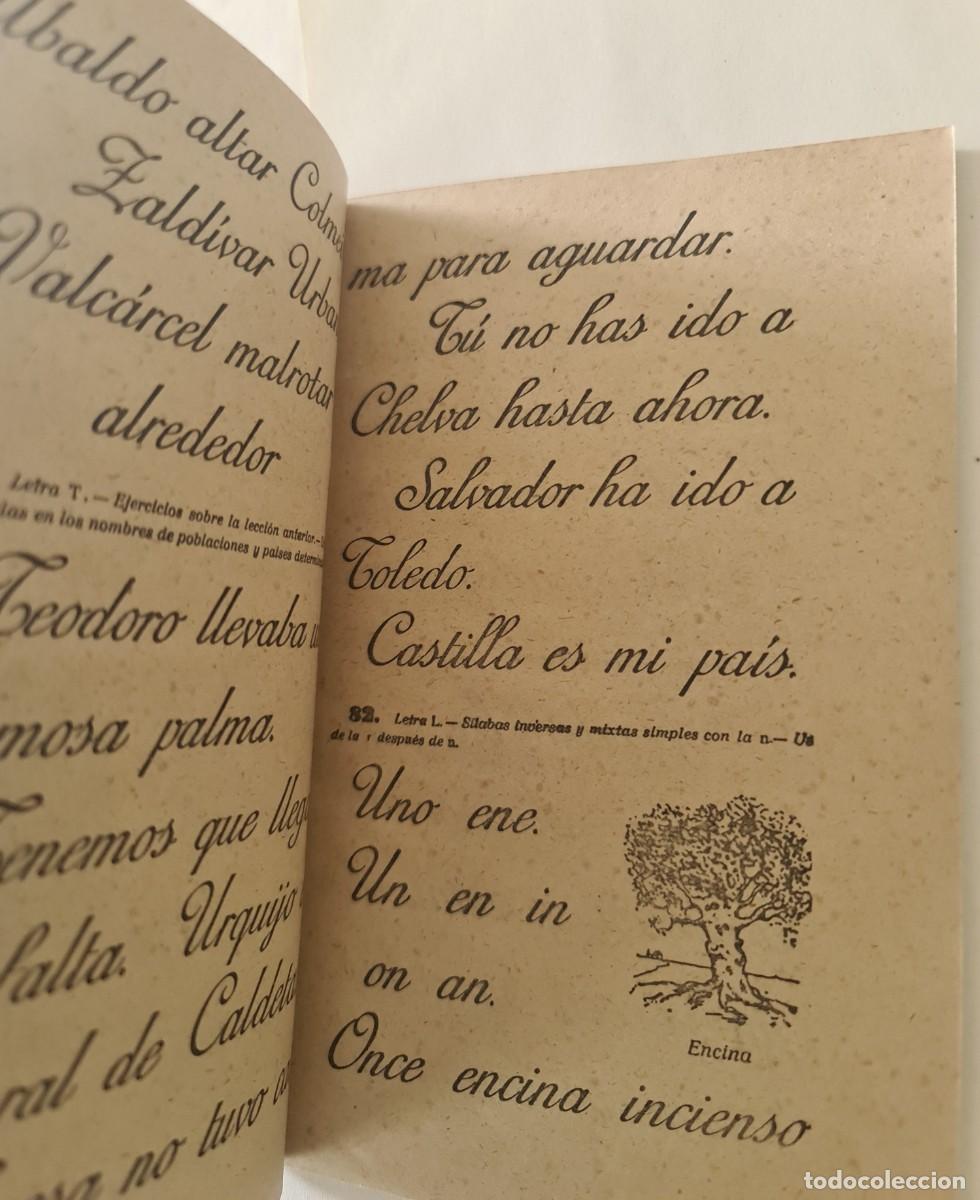 Ubaldo altar
Zaldívar
Valcárcel malrotar
alrededor
Letra T. — Ejercicios sobre la lección anterior.
en los nombres de poblaciones y países
Teodoro llevaba
palma.
Tenemos que
falta. Urquijo
de
no tuvo
ma para aguardar.
Tú no has ido a
Chelva hasta ahora.
Salvador ha ido a
Toledo.
Castilla es mi país.
82. Letra L. — Sílabas inversas y mixtas simples con la n. — Us
de la r después de n.
Uno ene.
Un en in
on an.
Encina
Once encina incienso
todocoleccion